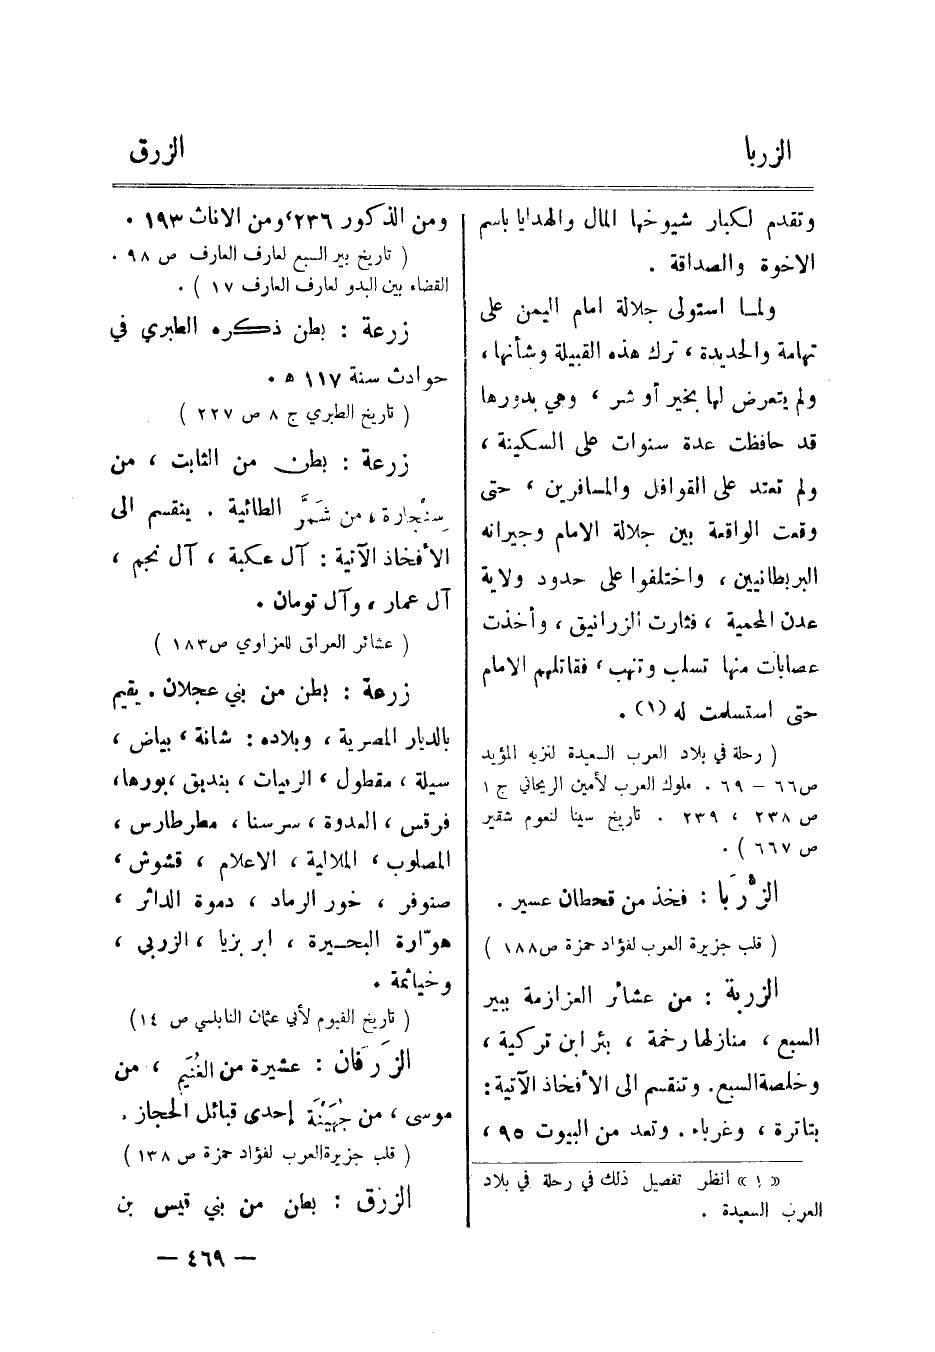 الزربا
الزرق
وتقدم لكبار شيوخها المال والهدايا باسم
الاخوة والصداقة .
ولما استولى جلالة امام اليمن على
تهامة والحديدة ، ترك هذه القبيلة وشأنها ،
ولم يتعرض لها بخير أو شر ، وهي بدورها
قد حافظت عدة سنوات على السكينة ،
ولم تعتد على القوافل والمسافرين ، حتى
وقعت الواقعة بين جلالة الامام وجيرانه
البريطانيين ، واختلفوا على حدود ولاية
عدن المحمية ، فثارت الزرانيق ، وأخذت
عصابات منها تسلب وتنهب ، فقاتلهم الامام
حتى استسلمت له (١) .
( رحلة في بلاد العرب السعيدة لنزيه المؤيد
ص٦٦ – ٦٩ . ملوك العرب لأمين الريحاني ج ١
ص ٢٣٨ ، ٢٣٩ . تاريخ سينا لنعوم شقير
ص ٦٦٧ ) .
الزُّرَبَا : فخذ من قحطان عسير .
( قلب جزيرة العرب لفؤاد حمزة ص١٨٨ )
الزربة : من عشائر العزازمة ببير
السبع ، منازلها رخمة ، بئر ابن تركية ،
وخلصةالسبع. وتنقسم الى الأفخاذ الآتية :
بتاترة ، وغرباء . وتعد من البيوت ٩٥ ،
« ١ » انظر تفصيل ذلك في رحلة في بلاد
العرب السعيدة .
ومن الذكور ٢٣٦ ،ومن الاناث ١٩٣ .
( تاريخ بير السبع لعارف العارف ص ٩٨ .
القضاء بين البدو لعارف العارف ١٧ ) .
زرعة : بطن ذكره الطبري في
حوادث سنة ١١٧ ه .
( تاريخ الطبري ج ٨ ص ٢٢٧ )
زرعة : بطن من الثابت ، من
سِنْجارة ، من شَمَّر الطائية . ينقسم الى
الأفخاذ الآتية : آل عكبة ، آل نجم ،
آل عمار ، وآل تومان .
( عشائر العراق للعزاوي ص١٨٣ )
زرعة : بطن من بني عجلان . يقيم
بالديار المصرية ، وبلاده : شانة ، بياض ،
سيلة ، مقطول ، الربيات ، بنديق ،بورها،
فرقس ، العدوة ، سرسنا ، مطرطارس ،
المصلوب ، الملالية ، الاعلام ، قشوش ،
صنوفر ، خور الرماد ، دموة الداثر ،
هوّارة البحيرة ، ابريزيا ، الزربي ،
وخياثمة .
( تاريخ الفيوم لأبي عثمان النابلسي ص ١٤)
الزَرَفان : عشيرة من الغُنَيم ، من
موسى ، من جُهَيْنَة إحدى قبائل الحجاز .
( قلب جزيرةالعرب لفؤاد حمزة ص ١٣٨ )
الزرق : بطن من بني قيس بن
— ٤٦٩ —